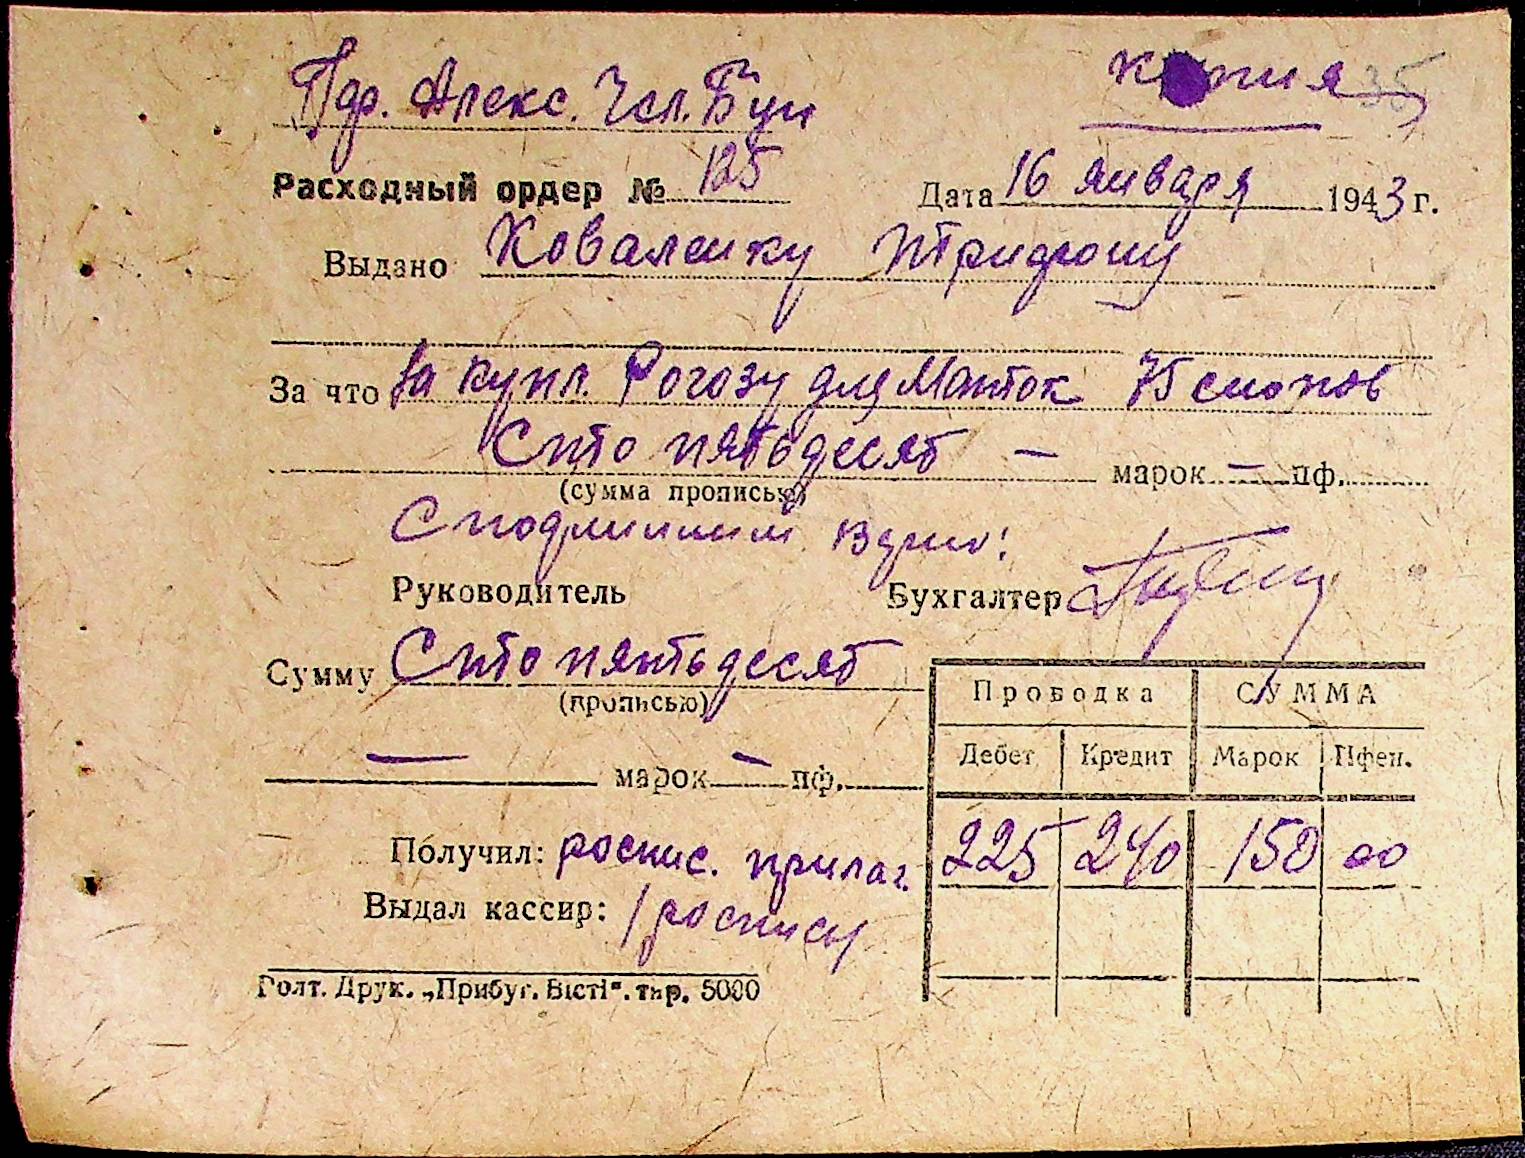 копия 35
Пдр. Алекс. Чсл. Буг
Расходный ордер № 125 Дата 16 января 1943 г.
Выдано Коваленку Трифону
За что за купл. Рогозу для Маток 75 снопов
Сто пятьдесят — марок — пф.
(сумма прописью)
С подлинным верно!
Руководитель Бухгалтер
Сумму Сто пятьдесят
(прописью)
— марок — пф.
Проводка СУММА
Дебет Кредит Марок Пфен.
225 240 150 00
Получил: роспис. прилаг.
Выдал кассир: /роспись
Голт. Друк. „Прибуг. Вісті“. тир. 5000